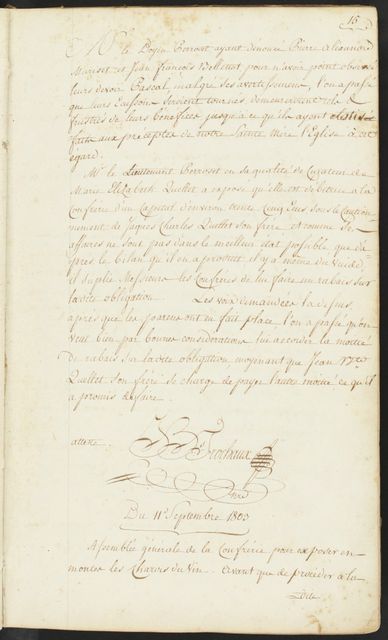 15
Mr. le Doyen Perroset ayant dénoncé Pierre Alexandre
Mariset et Jean François Bellenot pour n'avoir point observé
leurs devoir Pascal, malgré ses avertissement, l'on a passé
que leurs seroient tournés, demeureroient rière
frustrés de leurs bénéfices jusqu'à ce qu'ils ayent satis
faits aux préceptes de notre Sainte Mère l'Eglise à cet
égard.
Mr. le Lieutenant Perroset en sa qualité de Curateur de
Marie Elisabeth Quellet a exposé qu'elle est débitrice à la
Confrérie d'un Capital d'environ trente Cinq Ecus sous le Caution-
nement de Jaques Charles Quellet son frère, et comme ses
affaires ne sont pas dans le meilleur état possible que d'a
près le bilan qu'il en a produit il y a même du vuide,
il suplie Messieurs les Confrères de lui faire un rabais sur
ladite obligation. Les voix demandées là dessus,
après que les parents ont eu fait place, l'on a passé qu'on
veut bien par bonnes considérations lui accorder la moitié
de rabais sur ladite obligation moyenant que Jean
Quellet son frère se charge de payer l'autre moitié ce qu'il
a promis de faire.
atteste
Frochaux
Du 11e. Septembre 1803
Assemblée générale de la Confrérie pour exposer en
montes les Charois du Vin. Avant que de procéder à la-
dite